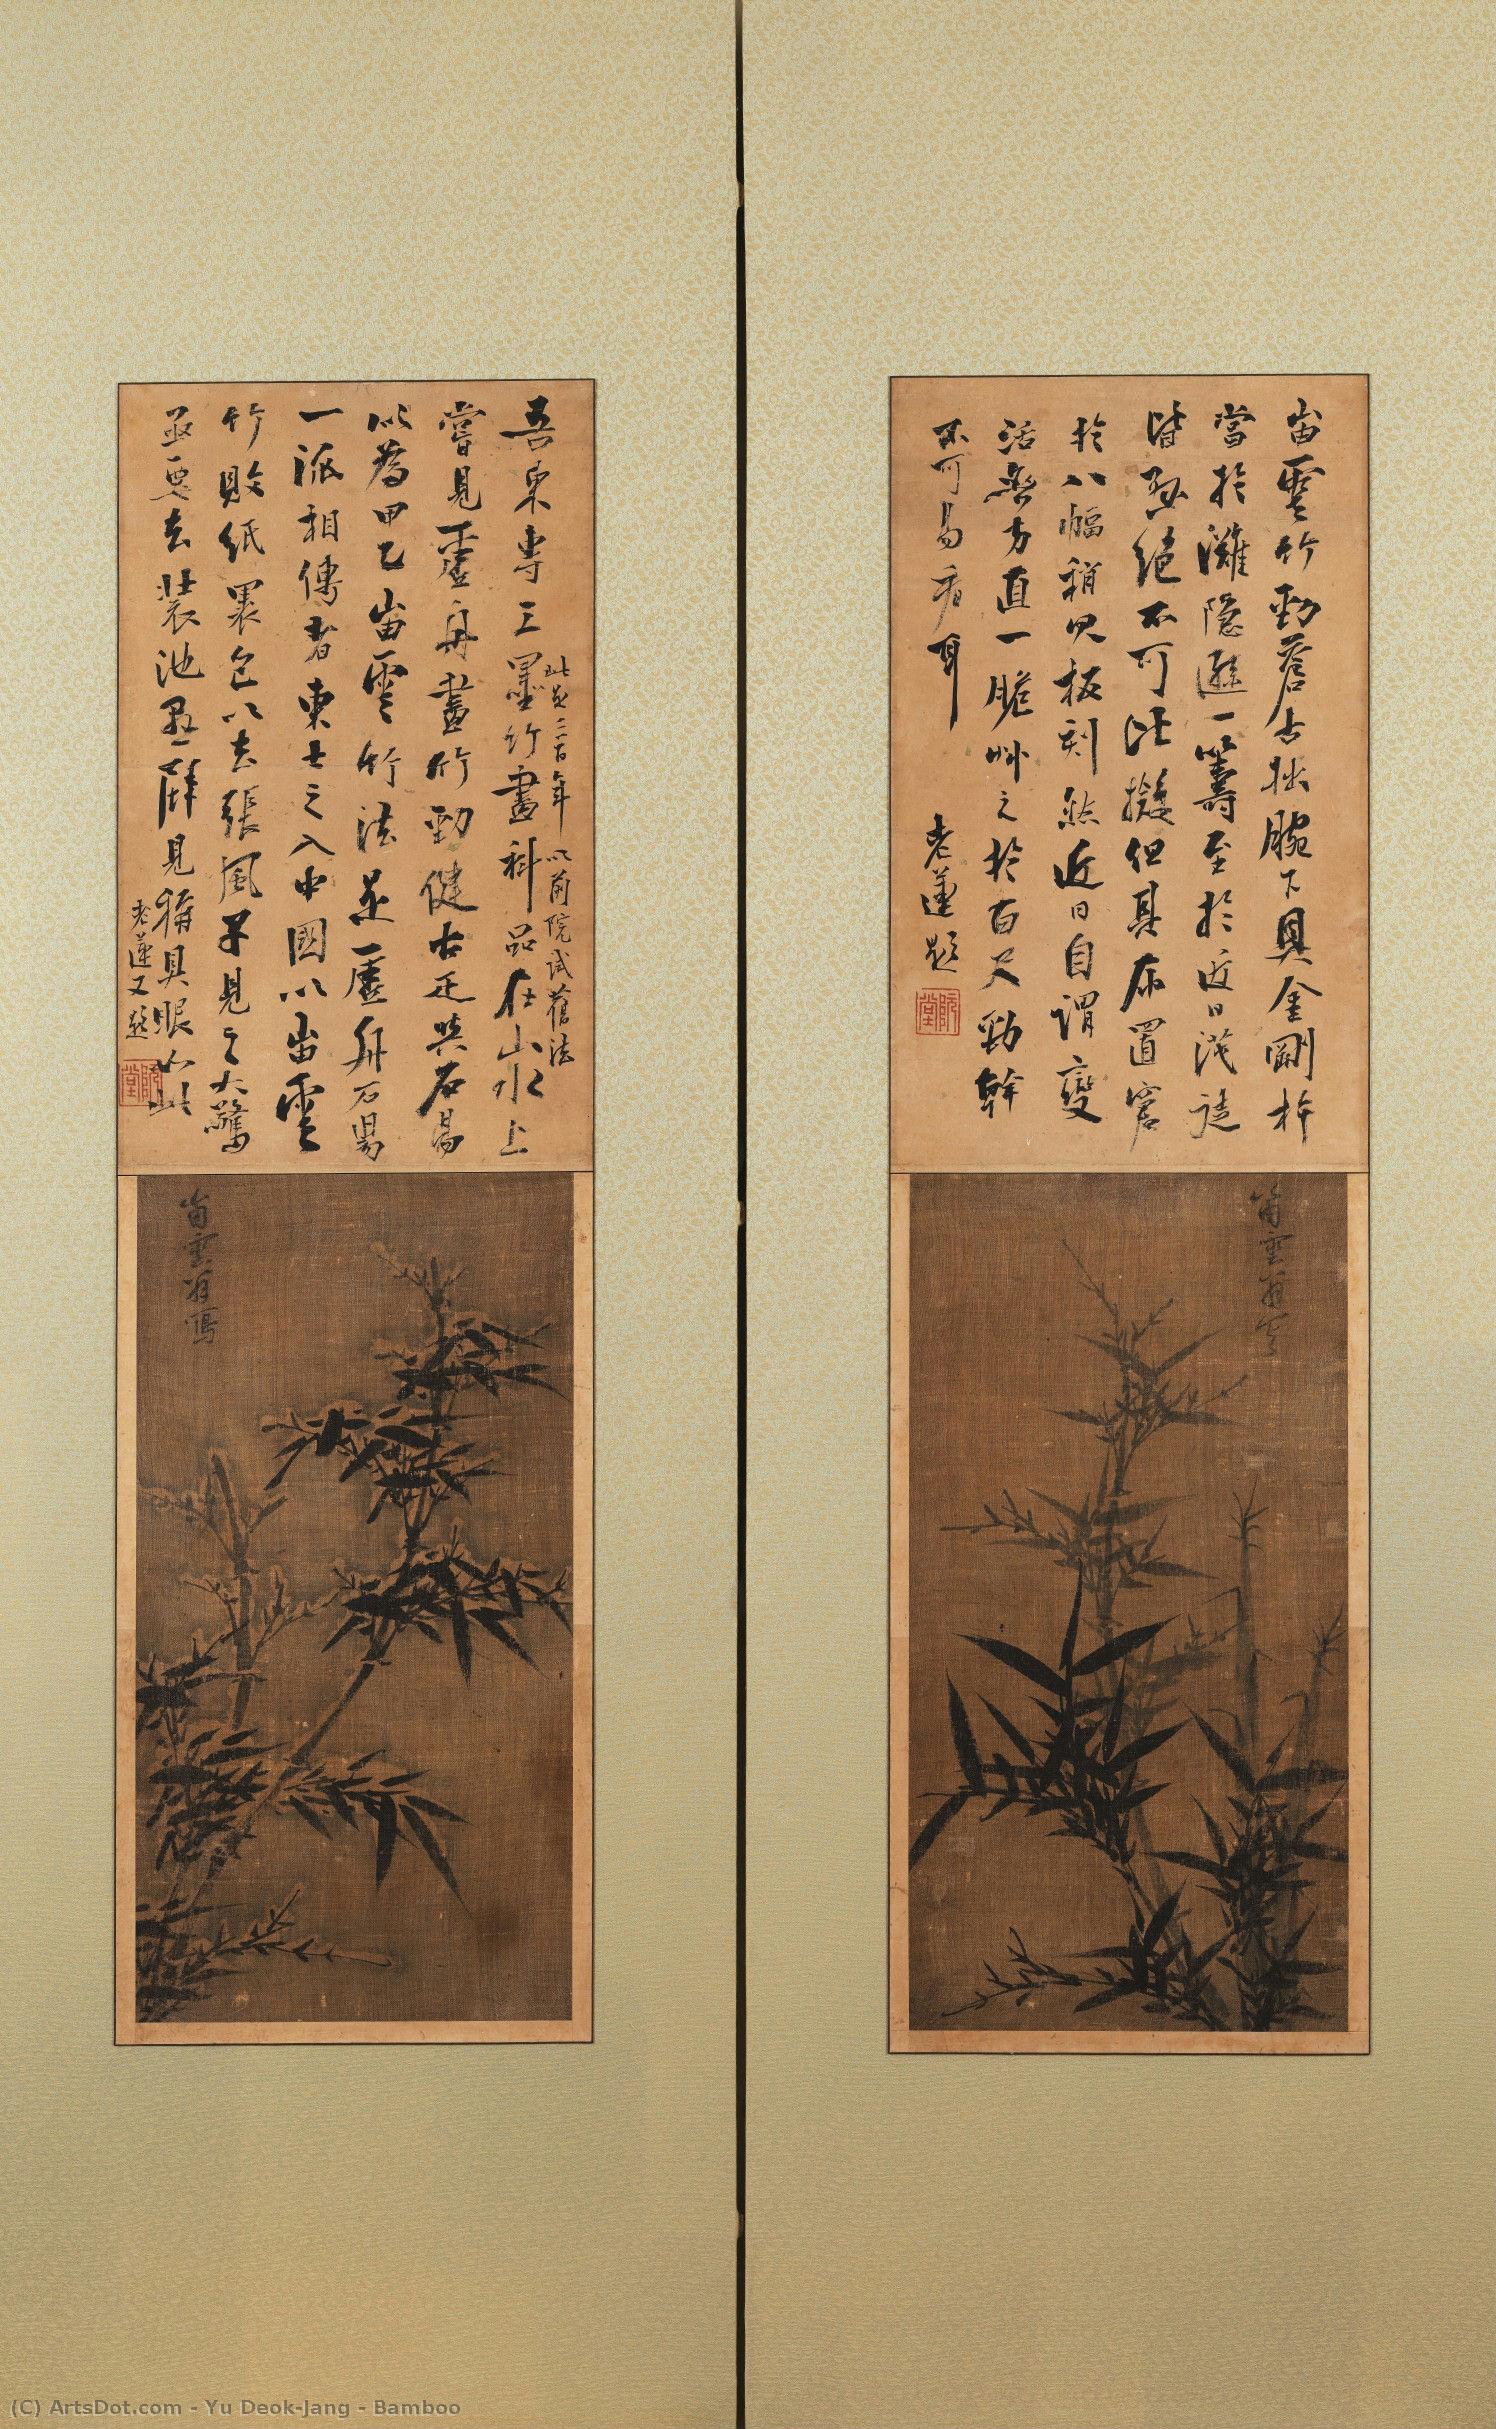 岫雲竹勁蒼古拙腕下具金剛杵
當於灘隱遜一籌至於近日淺
皆 絕不可比擬但具 置
於八幅 板刻 近日自謂變
活 方直一 之於百尺勁幹
不可易 耳
老蓮題
吾東專工墨竹畫科品在山水上
此是二三百年以前院試舊法
嘗見 舟畫竹勁健古 與石陽
以為甲乙岫雲竹法是 舟石陽
一派相傳者東士之入中國以岫雲
竹敗紙裹 以去張風子見之大驚
亟 去裝池 見稱具眼以此
老蓮又題
岫雲翁寫
岫雲翁寫
(C) ArtsDot.com - Yu Deok-Jang - Bamboo